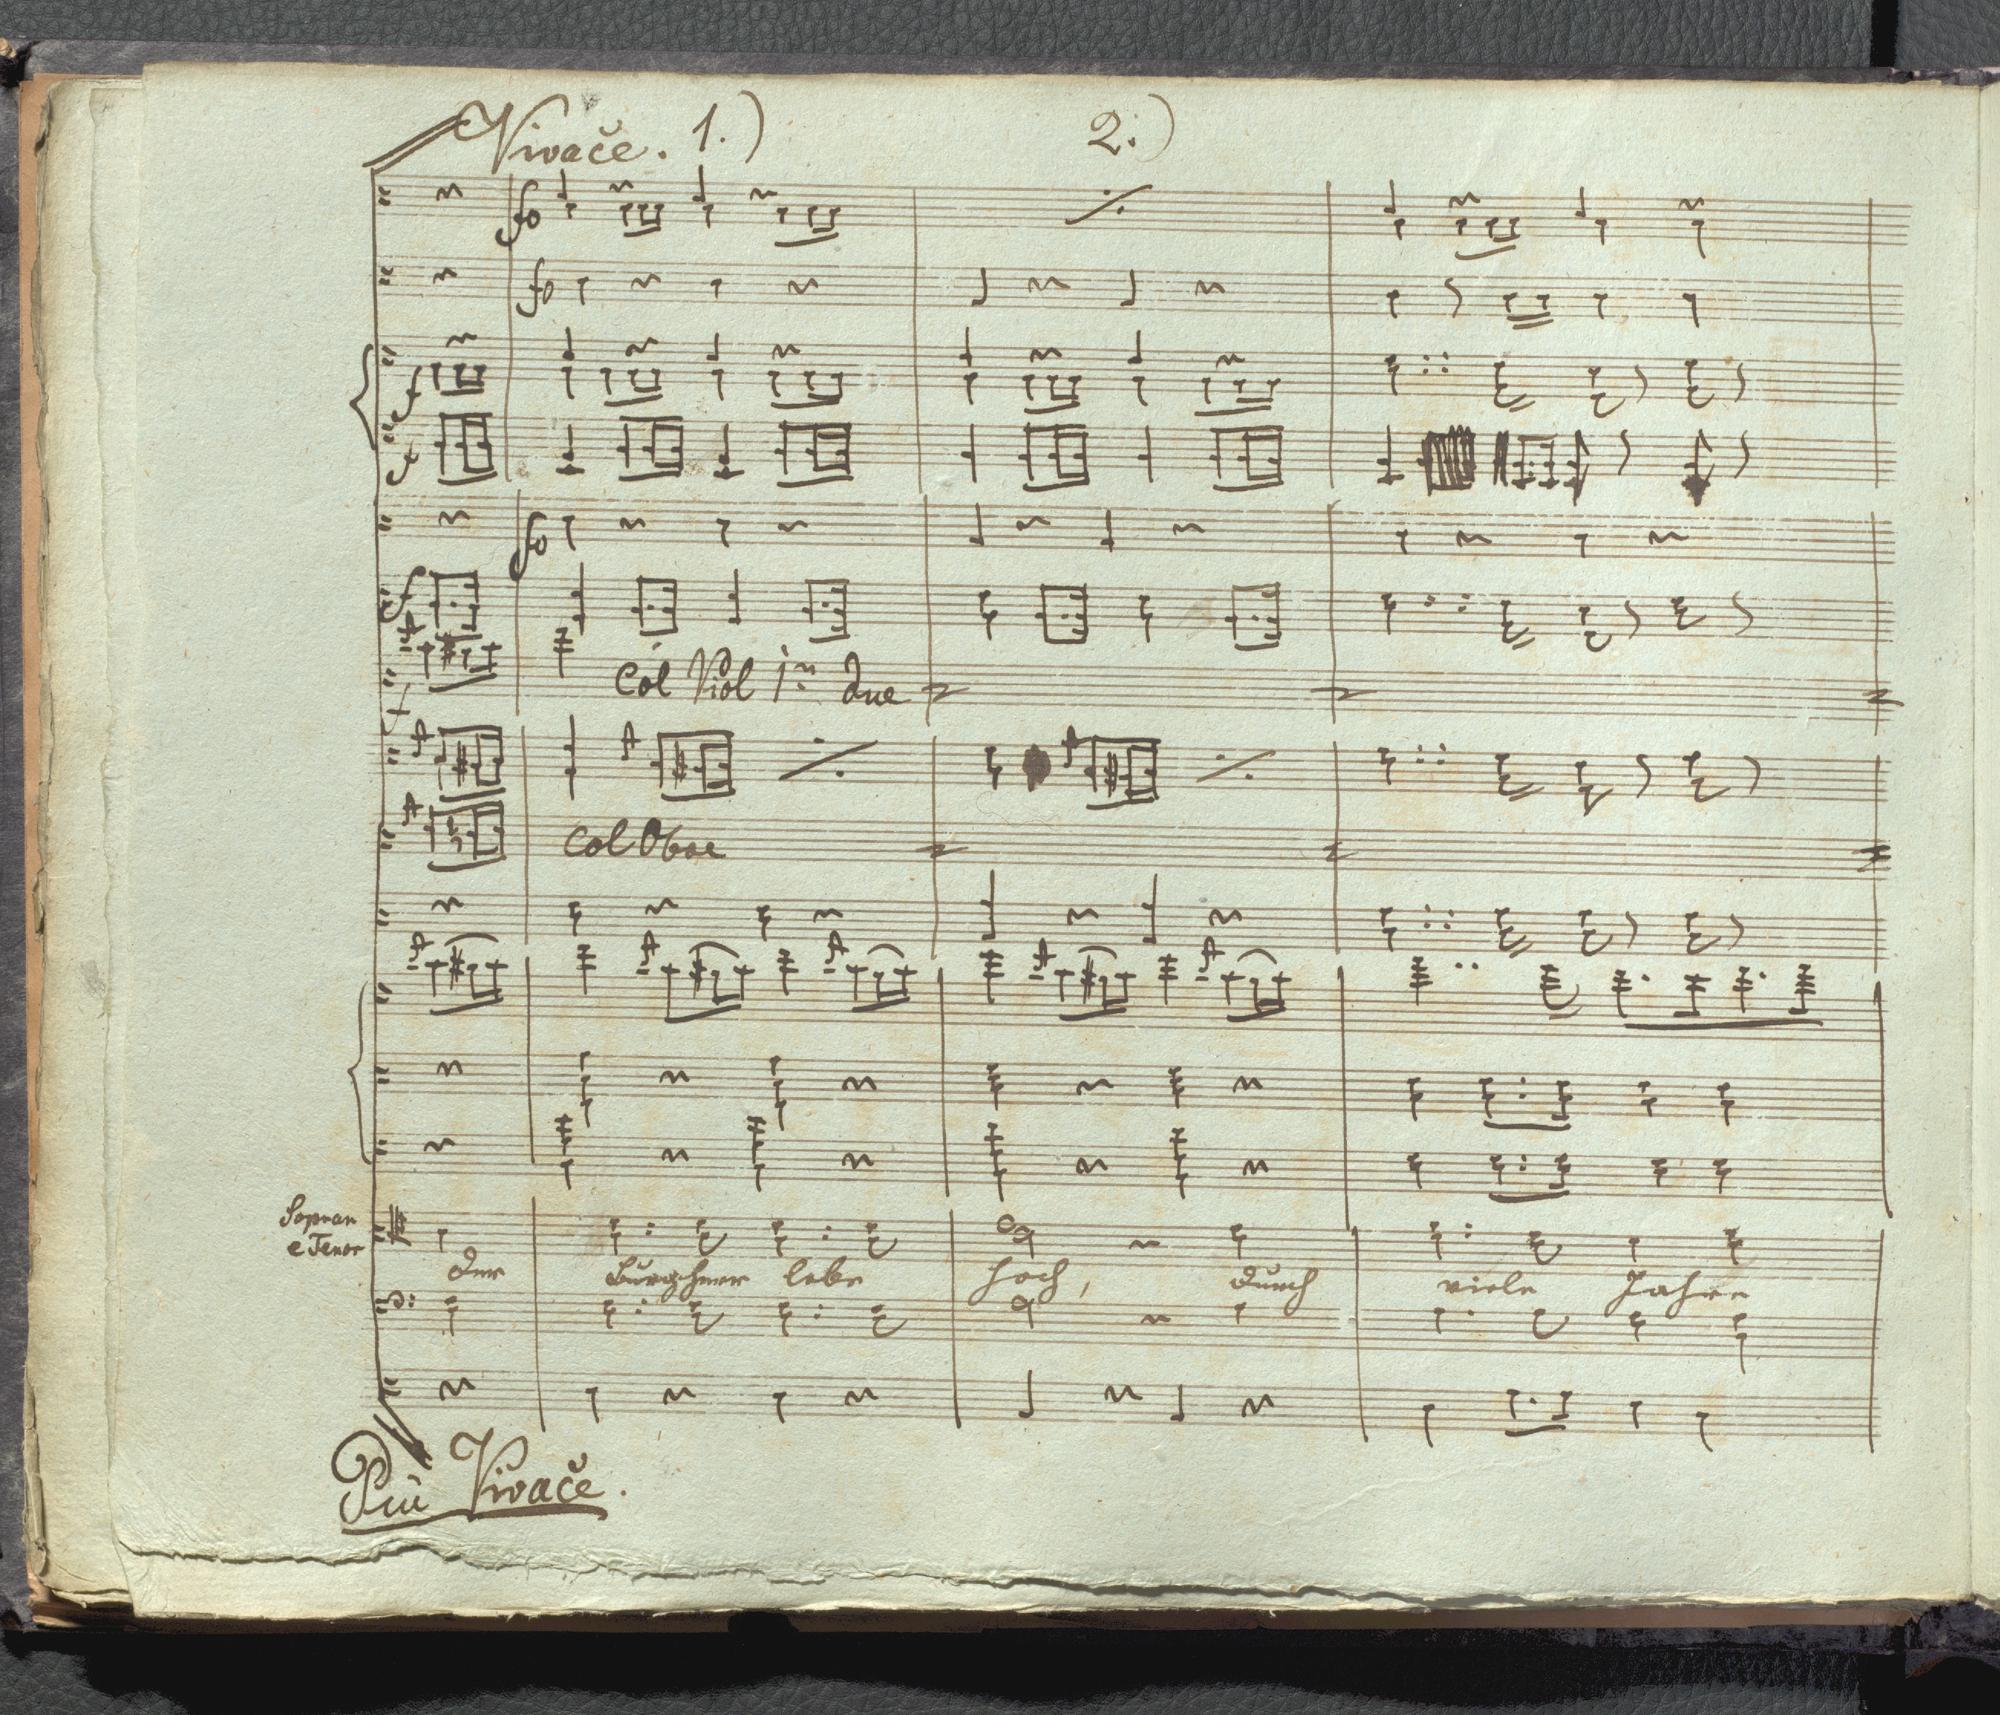 Vivače. 1.) 2.)
fo
fo
f
f
fo
f
f
Col Viol 1mo due
Col Oboe
Sopran
e Tenor
Der Burgherr lebe hoch, durch viele Jahre
Piu Vivače.